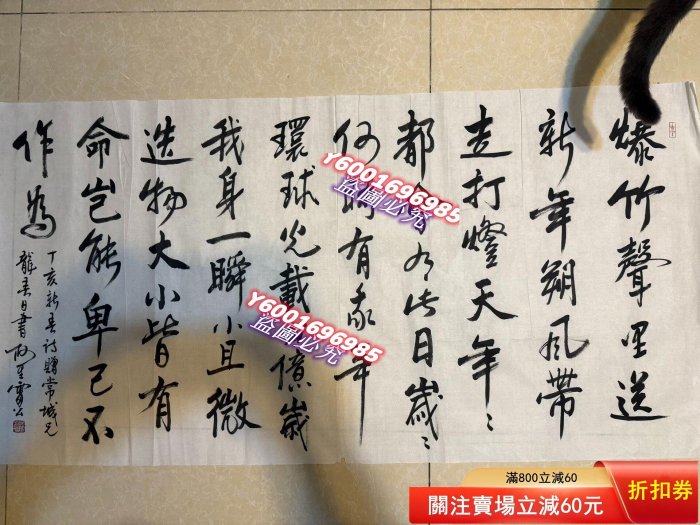 爆竹聲里送
新年朔風帶
走打燈天年々
都有此日歲々
何時有我年
環球先載億歲
我身一瞬小且微
造物大小皆有
命岂能卑己不
作為
丁亥新春詩贈常城兄
龍春日書
Y6001696985
盜圖必究
Y6001696985
盜圖必究
滿800立減60
關注賣場立減60元
折扣券